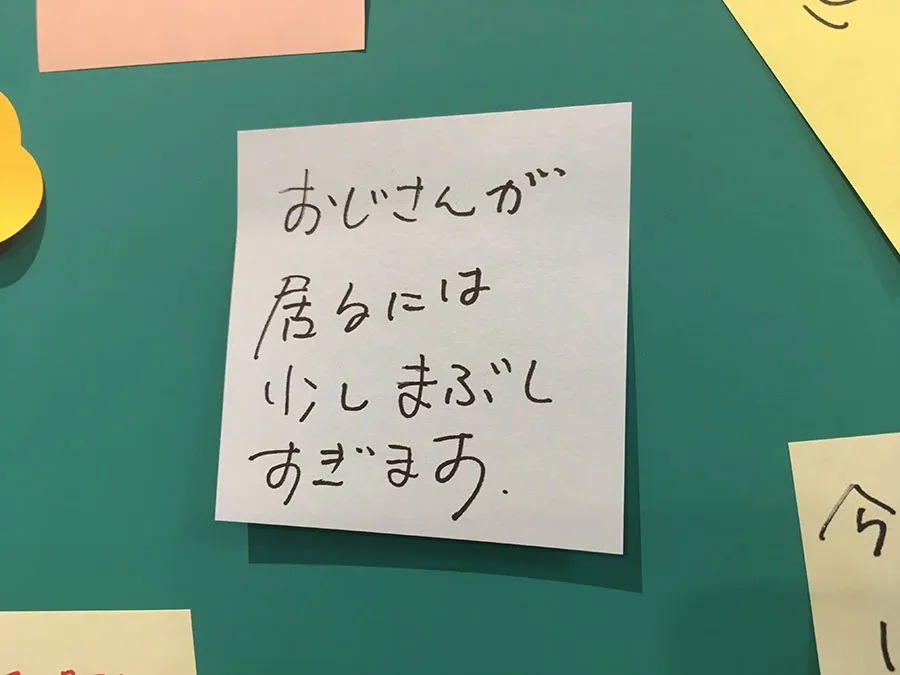 おじさんが
居るには
少しまぶし
すぎます.
今